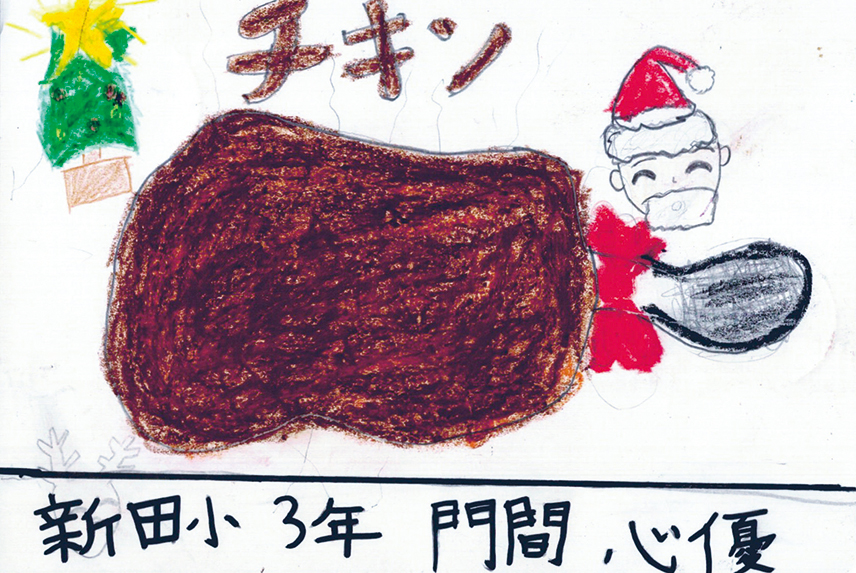 チキン
新田小 3年 門間 心優